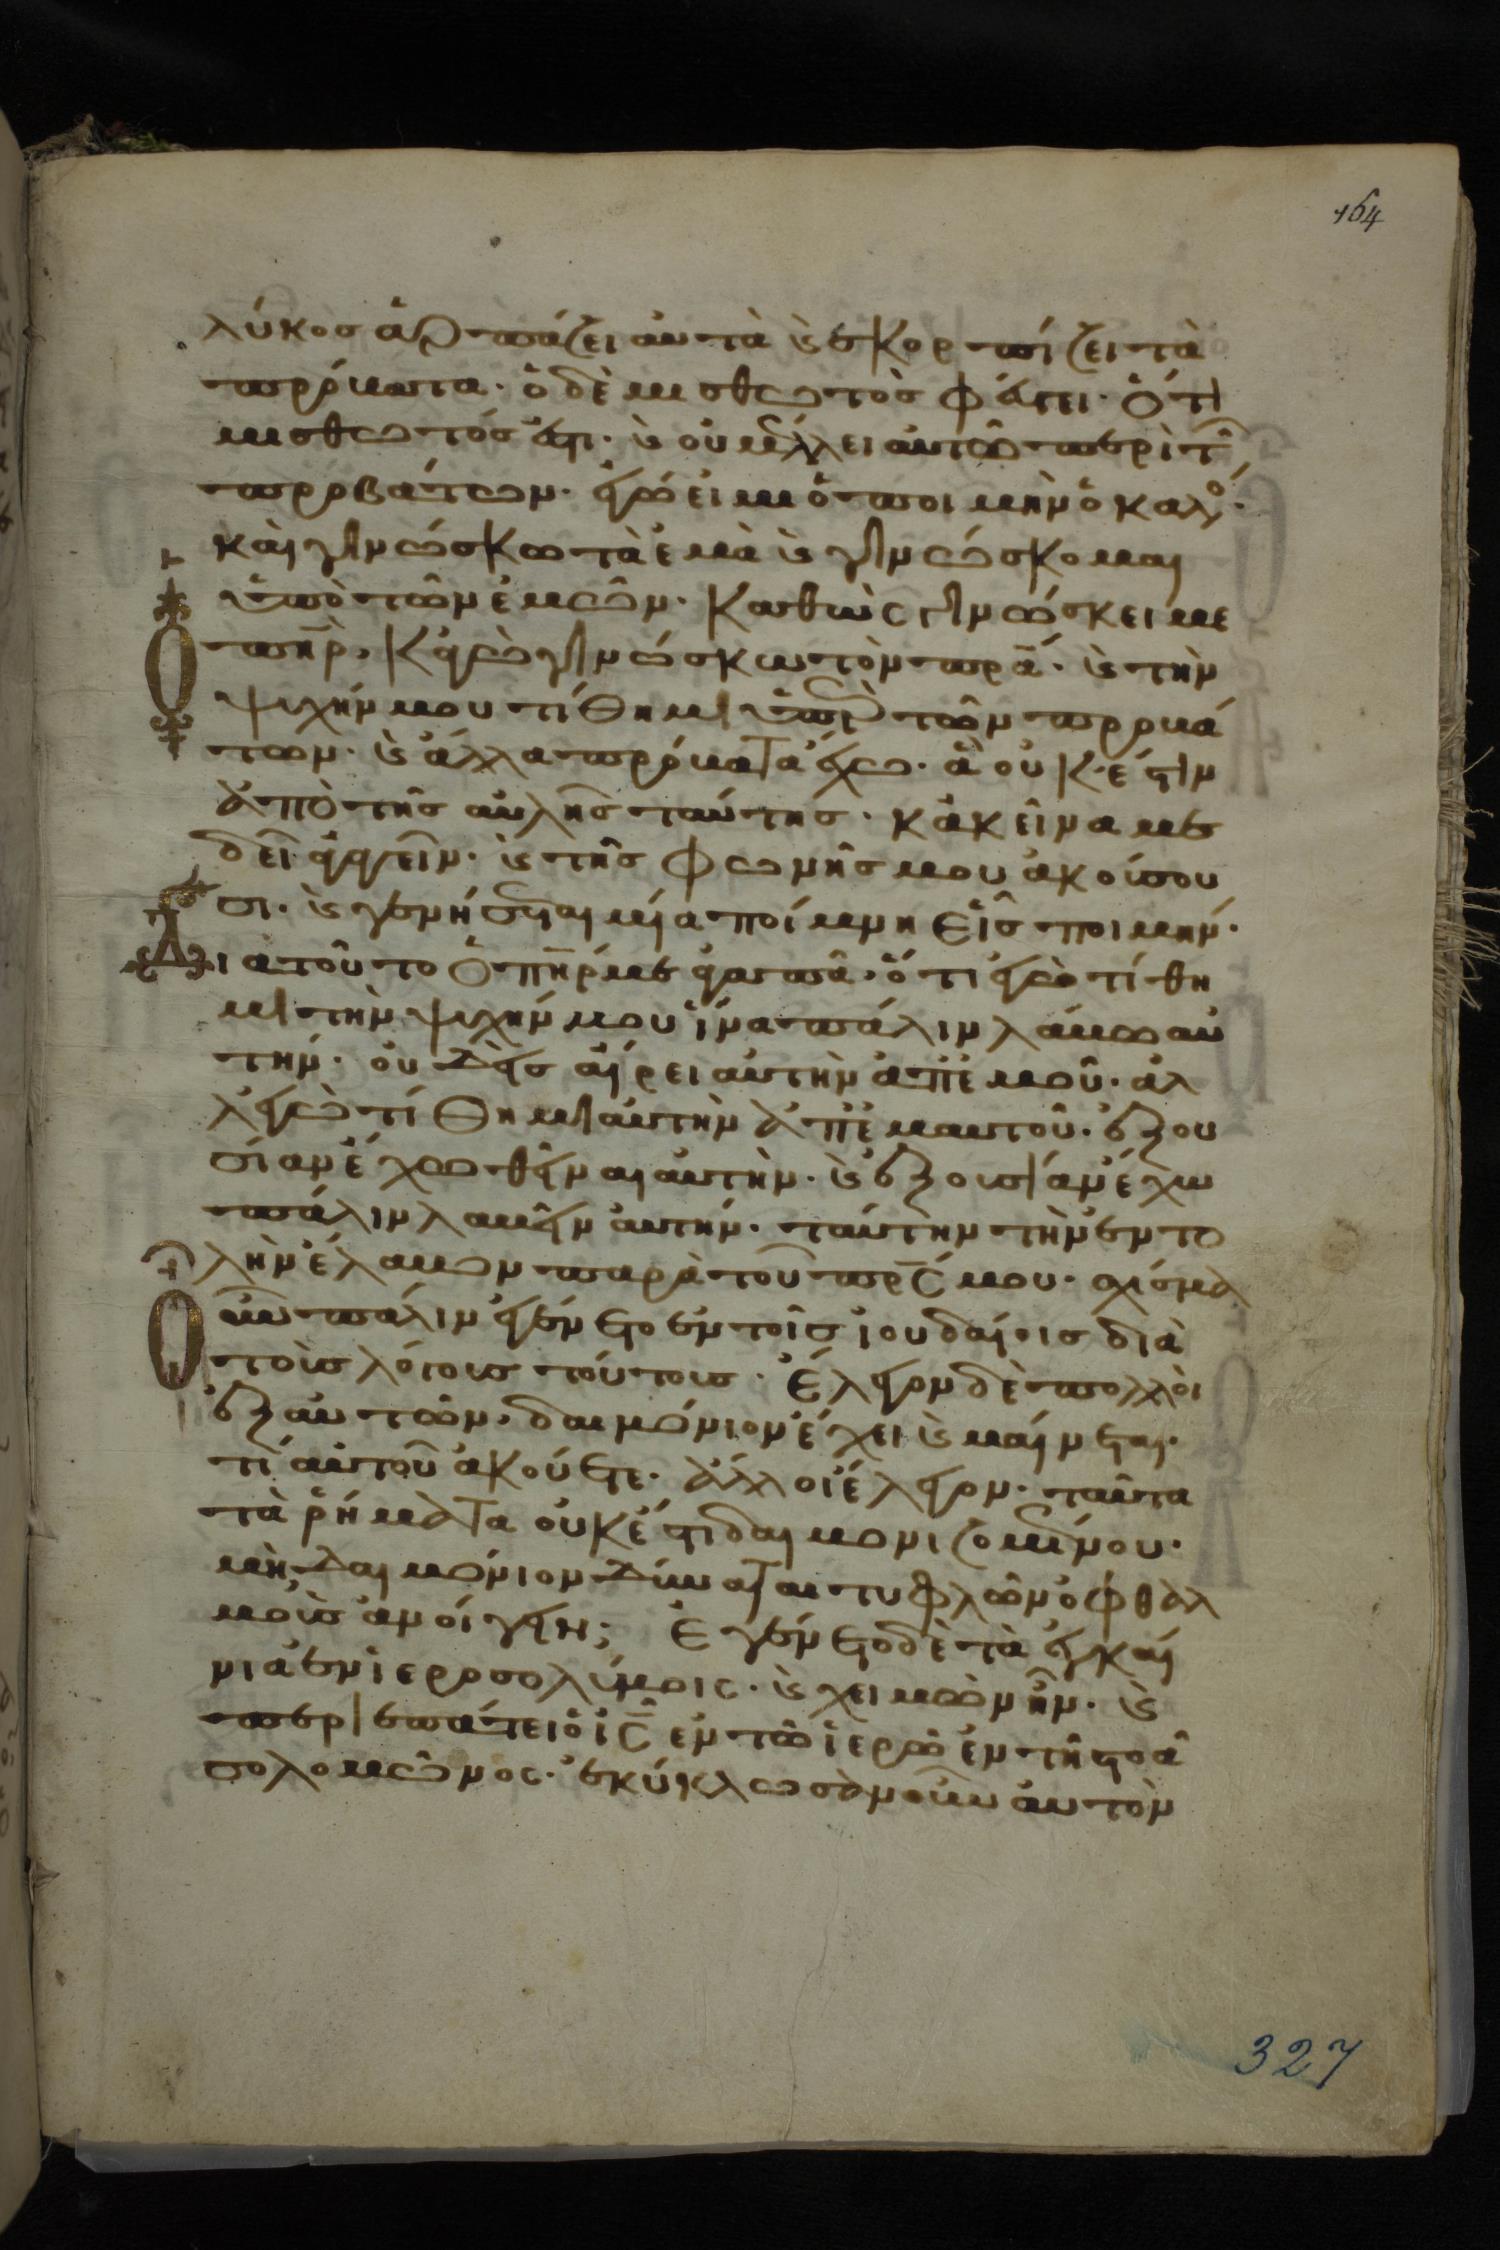 164
λύκος ἁρπάζει αὐτὰ καὶ σκορπίζει τὰ
πρόβατα· ὁ δὲ μισθωτὸς φεύγει· ὅτι
μισθωτός ἐστι· καὶ οὐ μέλλει αὐτῶ περὶ τῶν
προβάτων· ἐγώ εἰμι ὁ ποιμὴν ὁ καλός·
καὶ γινώσκω τὰ ἐμὰ καὶ γινώσκομαι
ὑπὸ τῶν ἐμῶν· καθὼς γινώσκει με
Ὁ πηρ, κἀγὼ γινώσκω τὸν πρα· καὶ τὴν
ψυχήν μου τίθημι ὑπὲρ τῶν προβά
των· καὶ ἄλλα πρόβατα ἔχω· ἃ οὐκ ἔστιν
ἀπὸ τῆς αὐλῆς ταύτης· κἀκεῖνα με
δεῖ ἀγαγεῖν· καὶ τῆς φωνῆς μου ἀκούσου
σι· καὶ γενήσεται μία ποίμνη εἷς ποιμήν·
Διατοῦτο ὁ πηρ με ἀγαπᾶ· ὅτι ἐγὼ τίθη
μι τὴν ψυχήν μου ἵνα πάλιν λάβω αὐ
τήν· οὐδεὶς αἴρει αὐτὴν ἀπ' ἐμοῦ· ἀλ
λ' ἐγὼ τίθημι αὐτὴν ἀπ' ἐμαυτοῦ· ἐξου
σίαν ἔχω θεῖναι αὐτὴν· καὶ ἐξουσίαν ἔχω
πάλιν λαβεῖν αὐτήν· ταύτην τὴν ἐντο
λὴν ἔλαβον παρὰ τοῦ πρς μου· σχίσμα
Οὖν πάλιν ἐγένετο ἐν τοῖς ἰουδαίοις διὰ
τοὺς λόγους τούτους· ἔλεγον δὲ πολλοὶ
ἐξ αὐτῶν, δαιμόνιον ἔχει καὶ μαίνεται·
τί αὐτοῦ ἀκούετε· ἄλλοι ἔλεγον· ταῦτα
τὰ ῥήματα οὐκ ἔστι δαιμονιζομένου·
μὴ δαιμόνιον δύναται τυφλῶν ὀφθαλ
μοὺς ἀνοίγειν; Ἐγένετο δὲ τὰ ἐγκαί
νια ἐν ἱεροσολύμοις· καὶ χειμὼν ἦν· καὶ
περιεπάτει ὁ ις ἐν τῶ ἱερῶ ἐν τῆ στοᾶ
σολομῶνος· ἐκύκλωσαν οὖν αὐτὸν
327